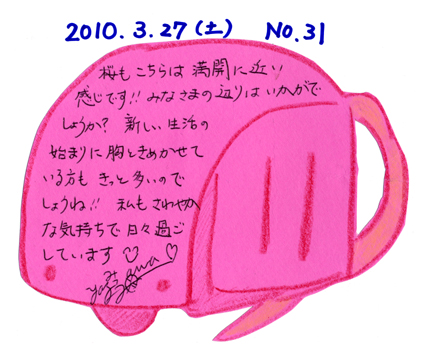 2010.3.27(土) No.31
桜も こちらは 満開に近い
感じです!! みなさまの辺りは いかがで
しょうか? 新しい生活の
始まりに 胸ときめかせて
いる方も きっと多いので
しょうね!! 私も さわやか
な気持ちで 日々過ご
しています